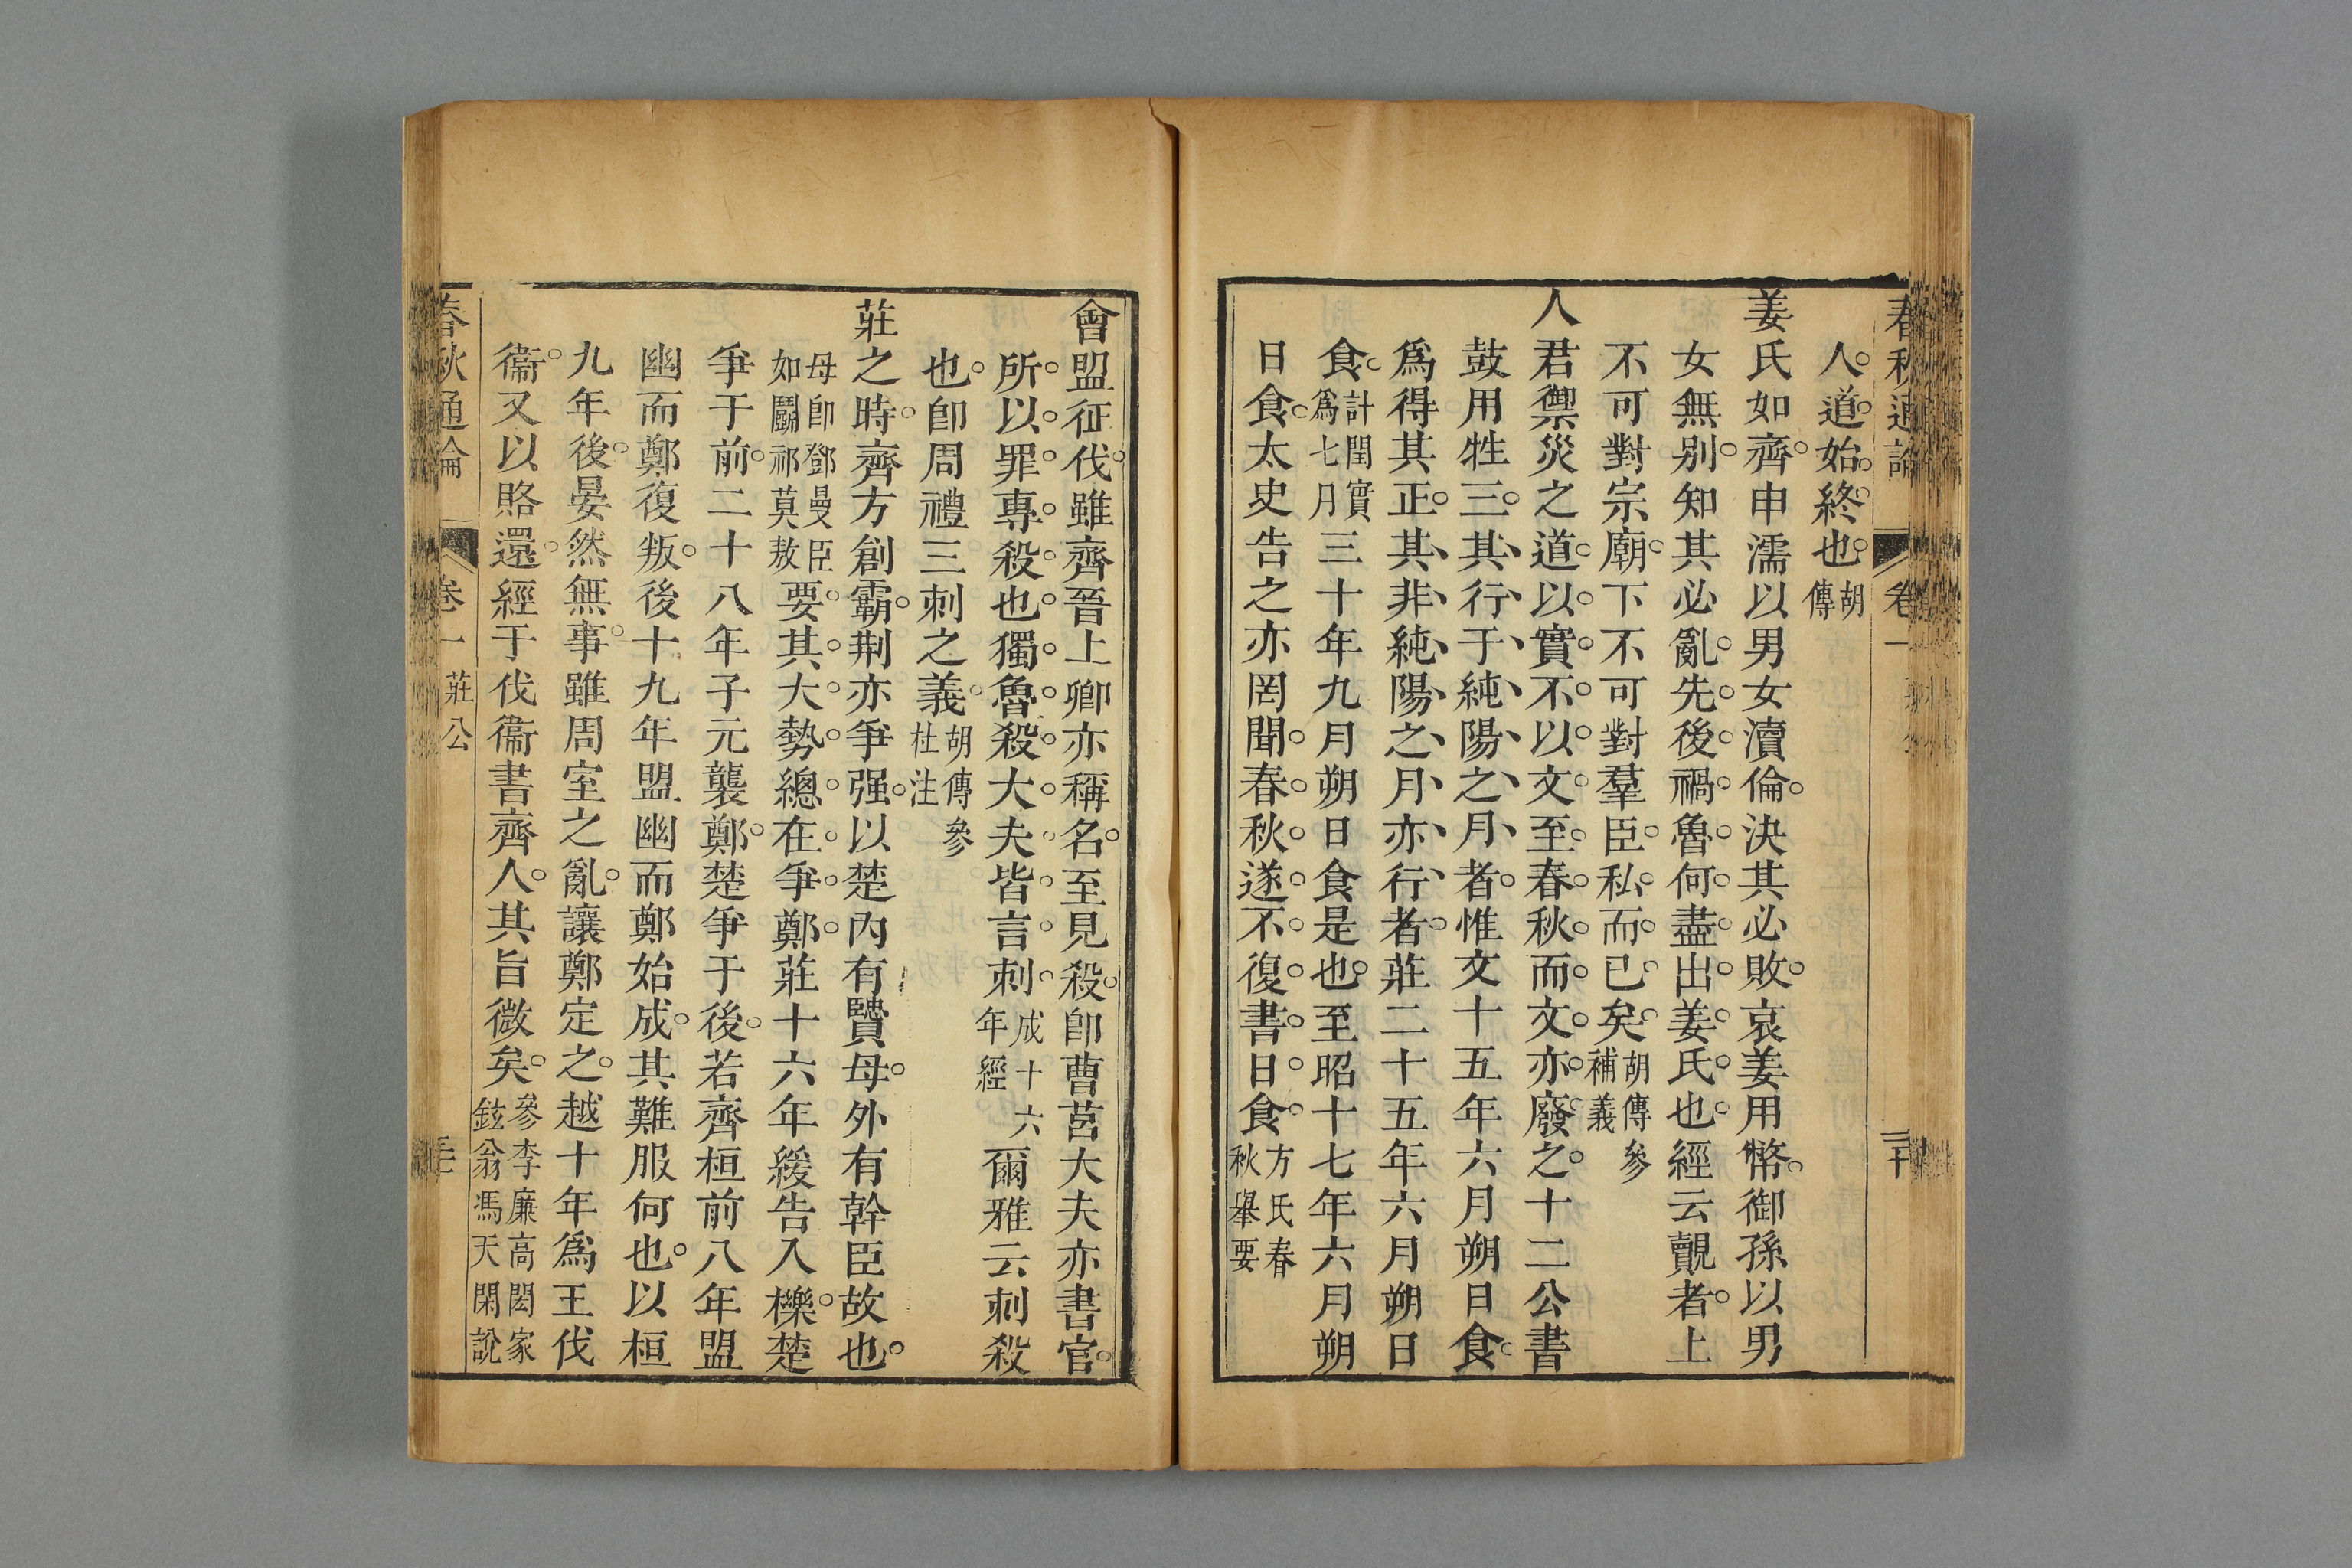 春秋通論 卷一
人道始終也胡傳
姜氏如齊申濡以男女瀆倫決其必敗哀姜用幣御孫以男
女無别知其必亂先後禍魯何盡出姜氏也經云覿者上
不可對宗廟下不可對羣臣私而已矣胡傳參補義
人君禦災之道以實不以文至春秋而文亦廢之十二公書
鼓用牲三其行于純陽之月者惟文十五年六月朔日食
爲得其正其非純陽之月亦行者莊二十五年六月朔日
食計閏實爲七月三十年九月朔日食是也至昭十七年六月朔
日食太史告之亦罔聞春秋遂不復書日食方氏春秋舉要
會盟征伐雖齊晉上卿亦稱名至見殺卽曹莒大夫亦書官
所以罪專殺也獨魯殺大夫皆言刺成十六年經爾雅云刺殺
也卽周禮三刺之義胡傳參杜注
莊之時齊方創霸荆亦爭强以楚內有賢母外有幹臣故也
母卽鄧曼臣如鬭祁莫敖要其大勢總在爭鄭莊十六年緩告入櫟楚
爭于前二十八年子元襲鄭楚爭于後若齊桓前八年盟
幽而鄭復叛後十九年盟幽而鄭始成其難服何也以桓
九年後晏然無事雖周室之亂讓鄭定之越十年爲王伐
衞又以賂還經于伐衞書齊人其旨微矣參李廉高閌家鉉翁馮天閑說
春秋通論 卷一 莊公